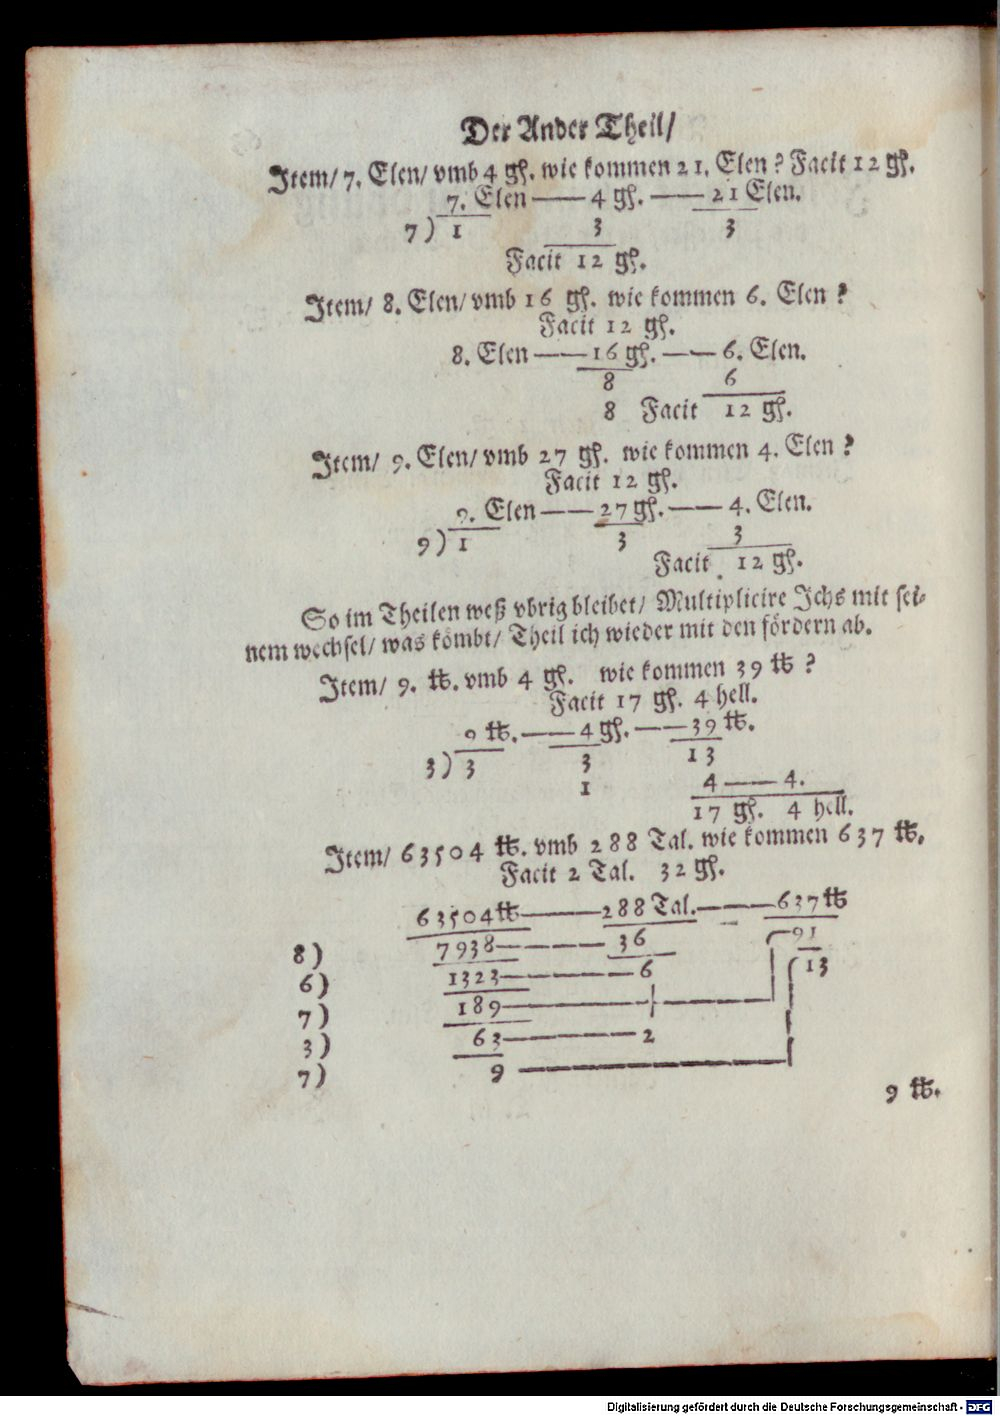 Der Ander Theil/
Item/ 7. Elen/ vmb 4 gß. wie kommen 21. Elen? Facit 12 gß.
7. Elen —— 4 gß. —— 21 Elen.
7) 1 3 3
Facit 12 gß.
Item/ 8. Elen/ vmb 16 gß. wie kommen 6. Elen?
Facit 12 gß.
8. Elen —— 16 gß. —— 6. Elen.
8 6
8 Facit 12 gß.
Item/ 9. Elen/ vmb 27 gß. wie kommen 4. Elen?
Facit 12 gß.
9. Elen —— 27 gß. —— 4. Elen.
9) 1 3 3
Facit 12 gß.
So im Theilen weß vbrig bleibet/ Multiplicire Ichs mit sei-
nem wechsel/ was kömbt/ Theil ich wieder mit den fördern ab.
Item/ 9. ℔. vmb 4 gß. wie kommen 39 ℔?
Facit 17 gß. 4 hell.
9 ℔. —— 4 gß. —— 39 ℔.
3) 3 3 13
1 4 —— 4.
17 gß. 4 hell.
Item/ 63504 ℔. vmb 288 Tal. wie kommen 637 ℔.
Facit 2 Tal. 32 gß.
63504 ℔ —— 288 Tal. —— 637 ℔
8) 7938 —— 36 91
6) 1323 —— 6 13
7) 189
3) 63 —— 2
7) 9
9 ℔.
Digitalisierung gefördert durch die Deutsche Forschungsgemeinschaft - DFG